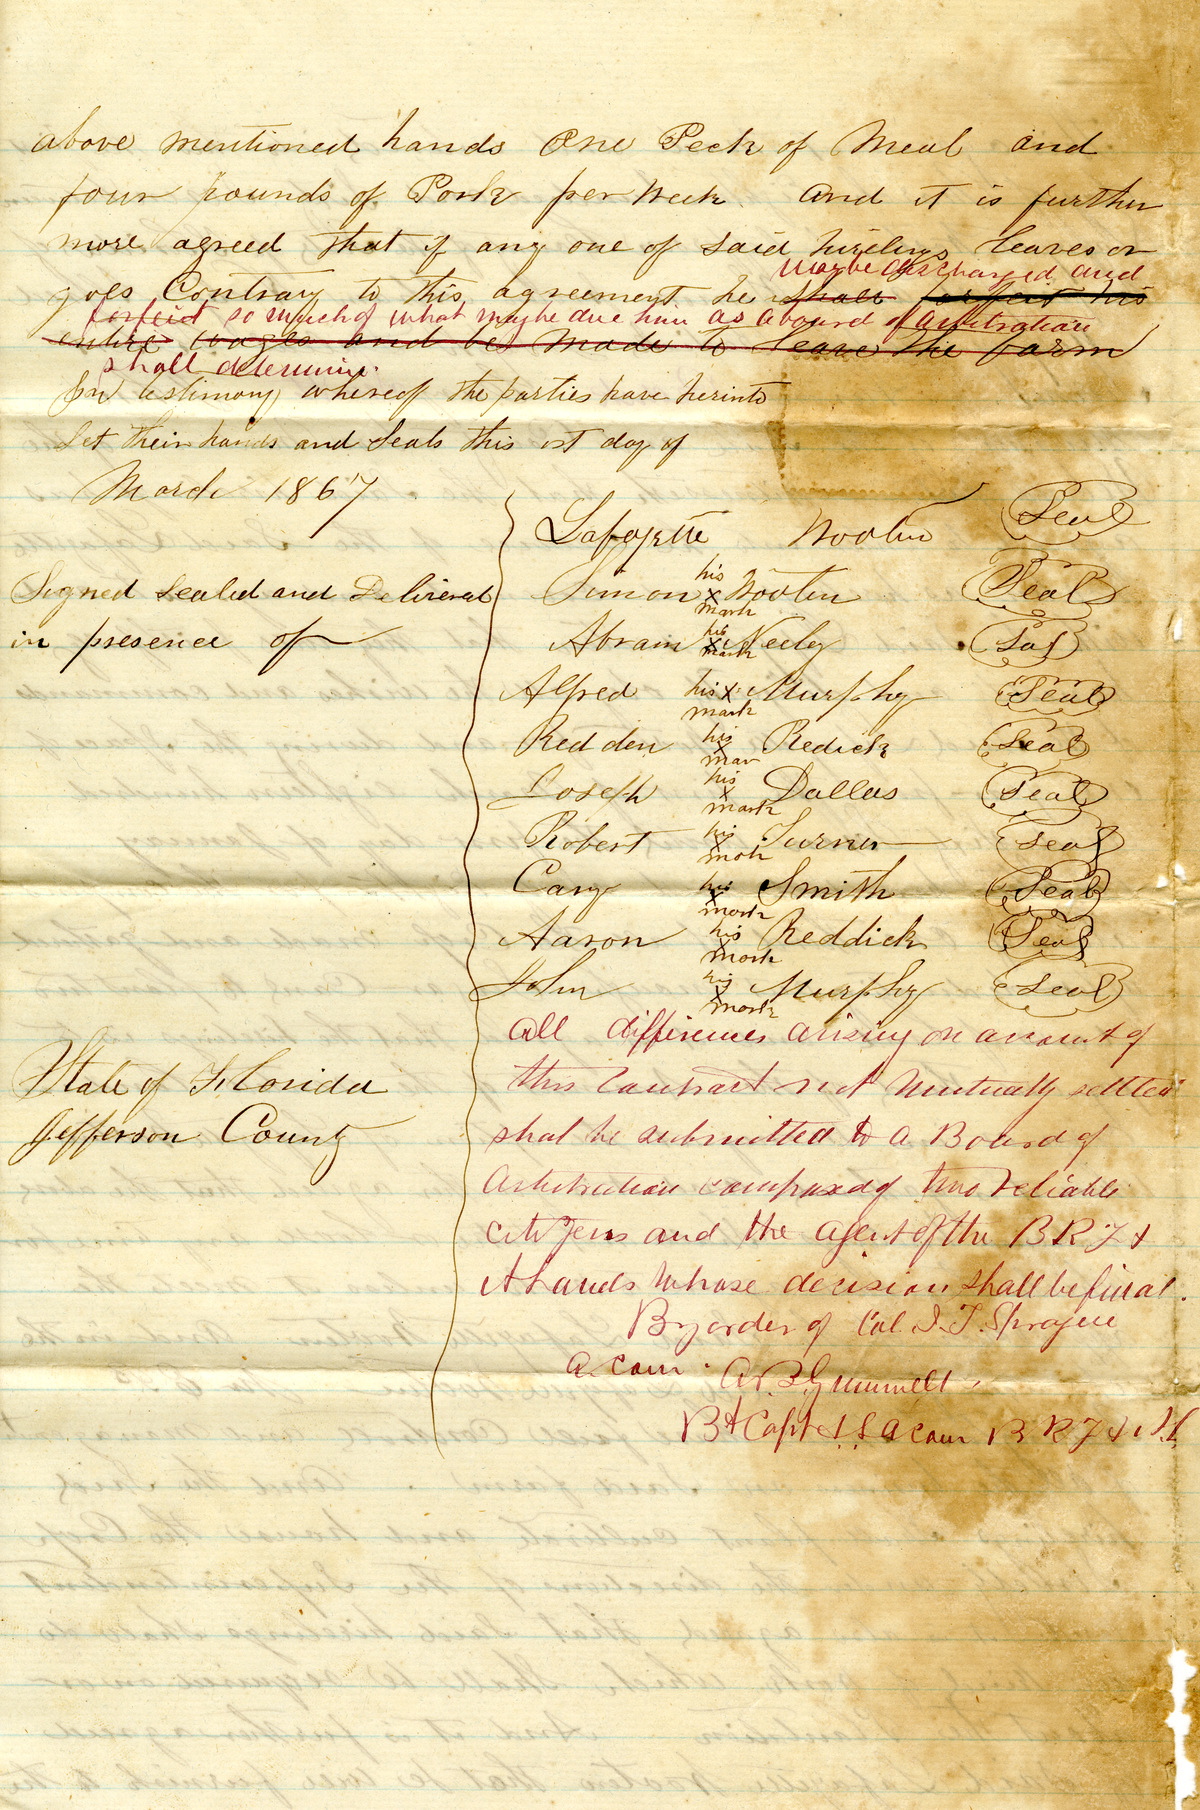 above mentioned hands One Peck of Meal and
four pounds of Pork per week. and it is further
more agreed that if any one of said hirelings leaves or
may be discharged and
goes Contrary to this agreement he shall forfeit his
forfeit so much of what may be due him as a board of arbitration
entire wages and be made to leave the farm
shall determine.
In testimony whereof the parties have herinto
Set their hands and Seals this 1st day of
March 1867
Lafayette Wooten Seal
Signed Sealed and Delivered
in presence of
his
Simon x Wooten Seal
mark
his
Abram x Neely Seal
mark
his
Alfred x Murphy Seal
mark
his
Redden x Redick Seal
mar
his
Joseph x Dallas Seal
mark
his
Robert x Turner Seal
mark
his
Cary x Smith Seal
mark
his
Aaron x Reddick Seal
mark
his
John x Murphy Seal
mark
State of Florida
Jefferson County
All differences arising on account of
this Contract not mutually settled
shal be submitted to a Board of
Arbitration composed of two reliable
citizens and the agent of the B R F &
A Lands whose decision shall be final.
By order of Col J. T. Sprague
a. com.
Bt Capt & S A Com B R F &